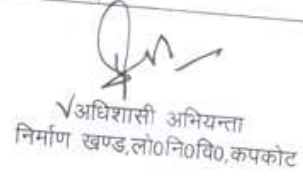 √अधिशासी अभियन्ता
निर्माण खण्ड,लो०नि०वि०,कपकोट